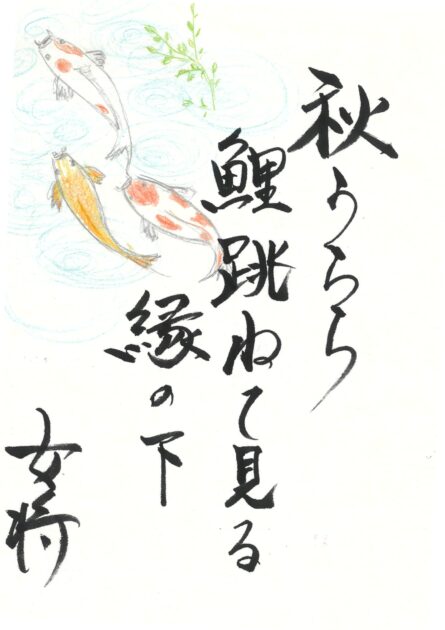 秋うらら
鯉跳ねて見る
縁の下
女将